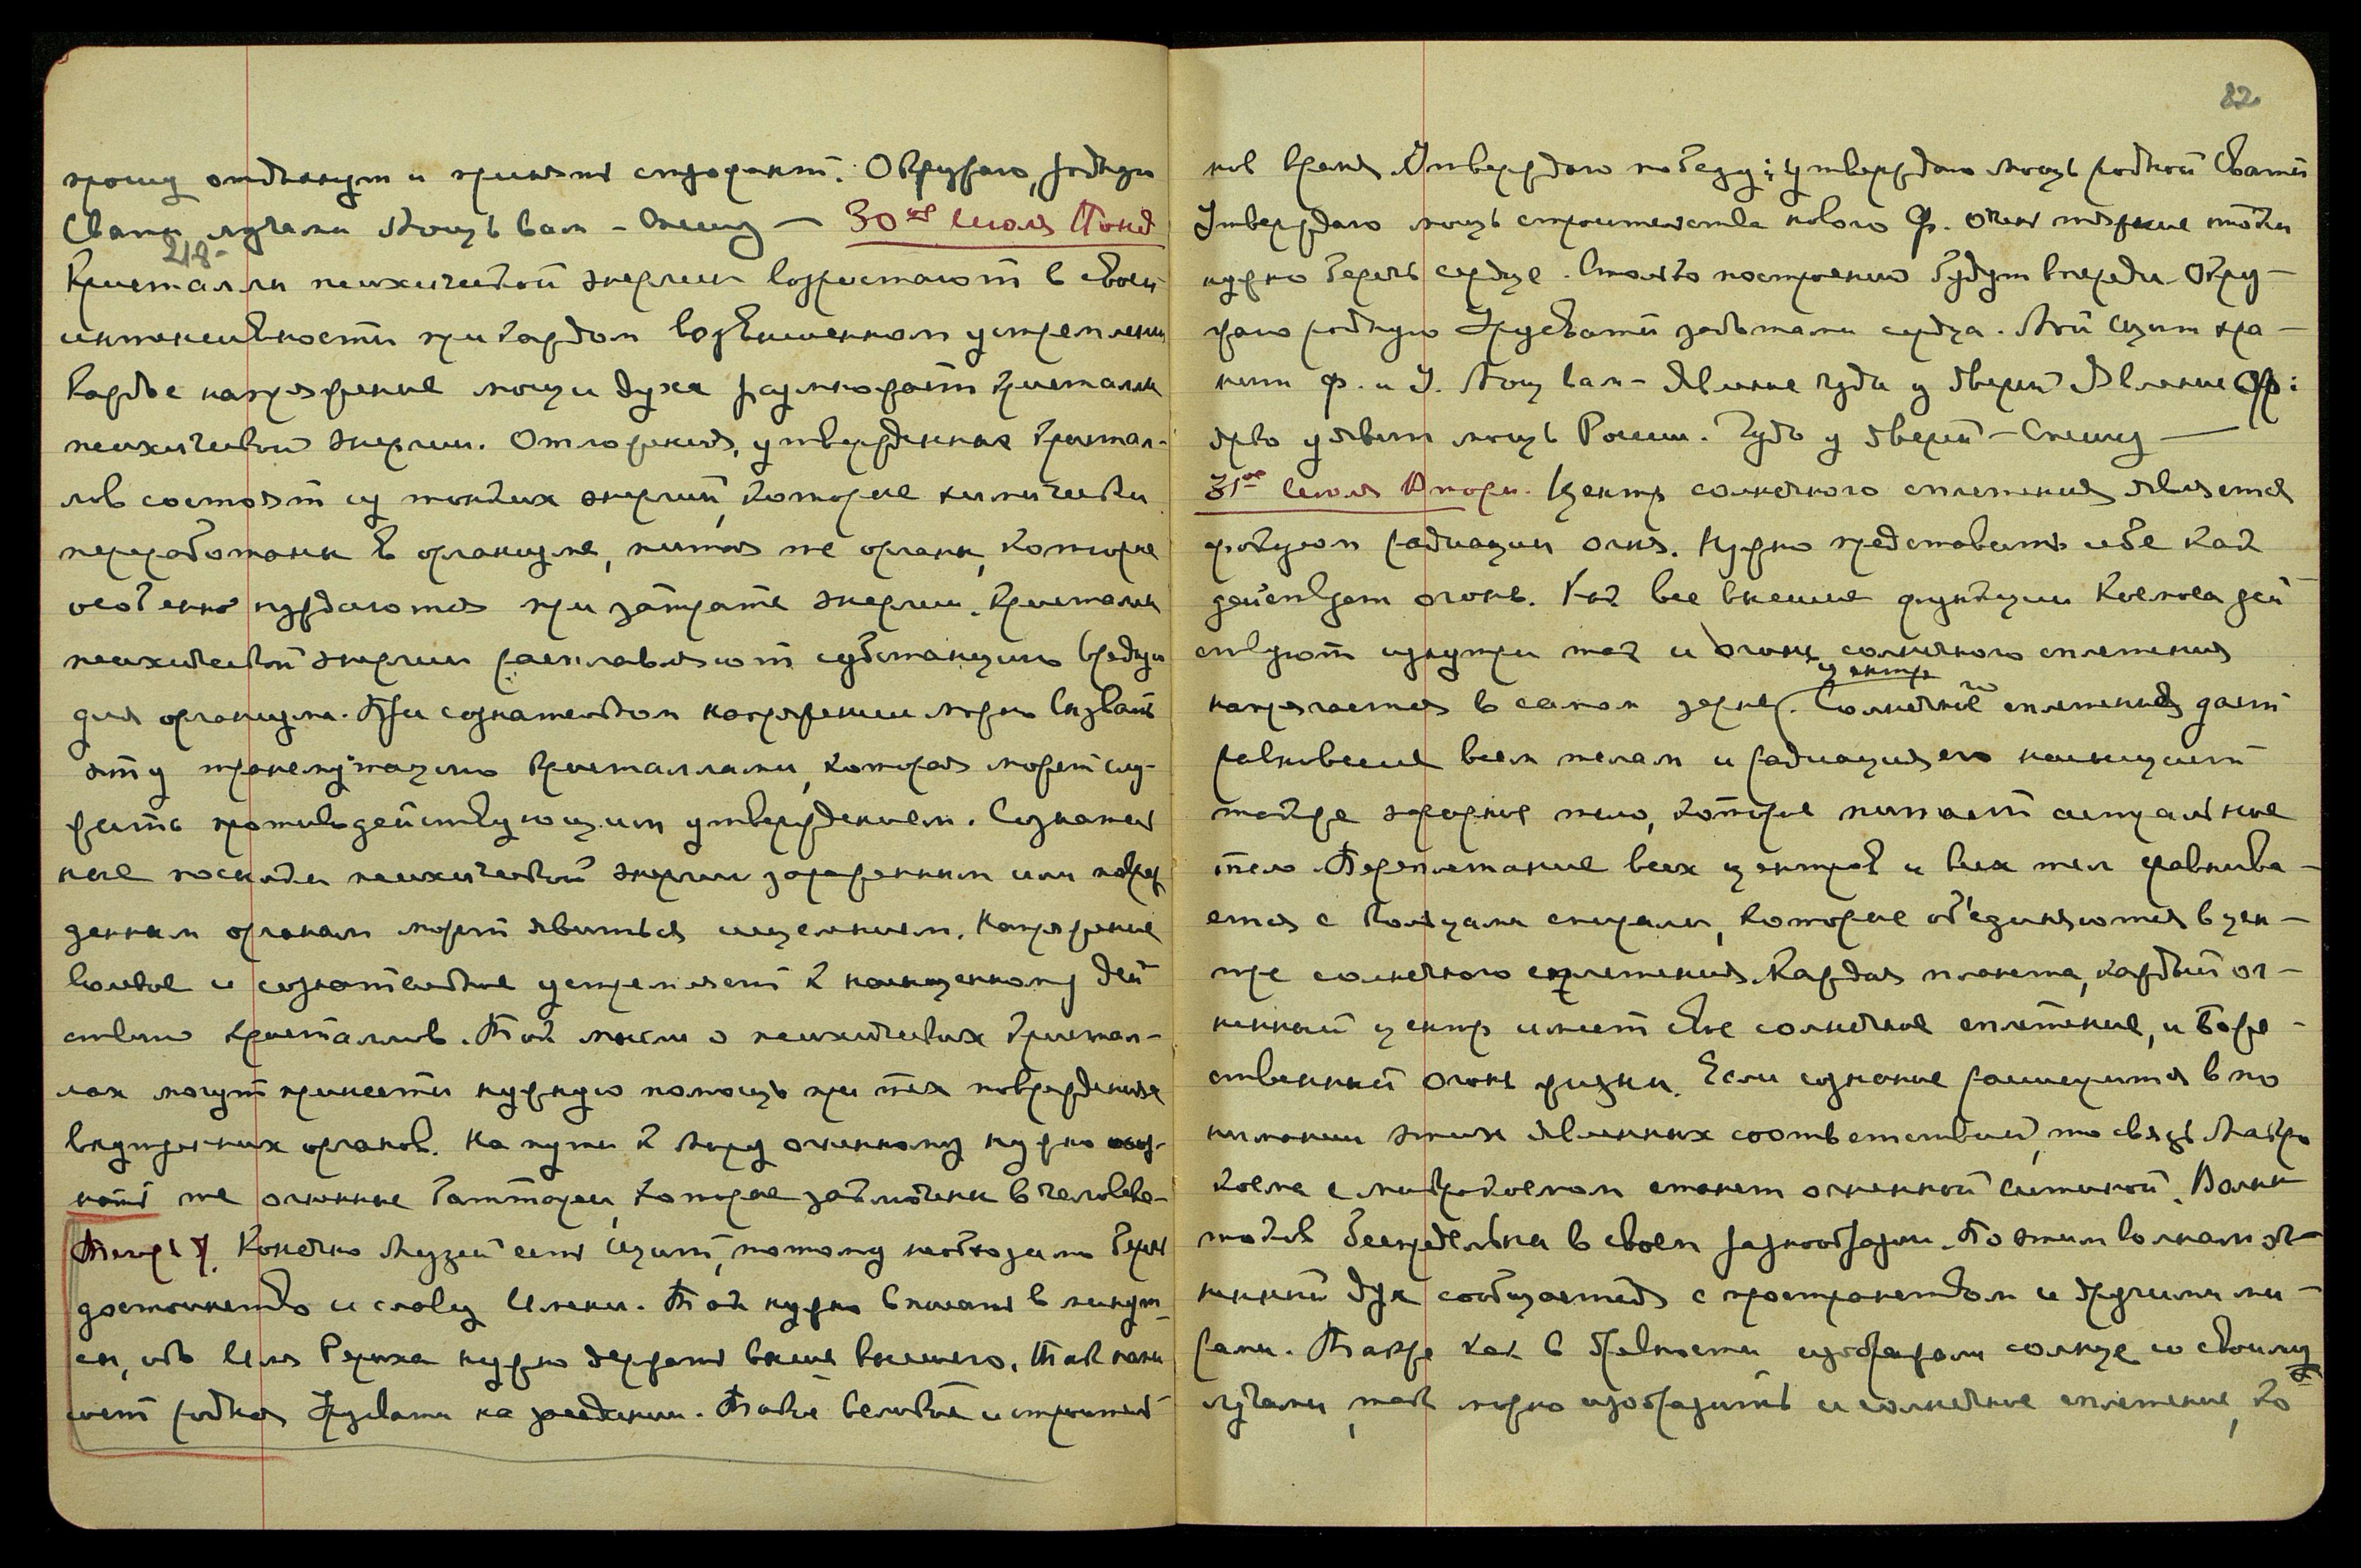 прошу отдохнут и принять строфант. Окружаю родную
Свати лучами Мощь вам – Спешу — 30ое Июля Понед
218-
Кристаллы психической энергии возрастают в своей
интенсивности при каждом возвышенном устремлении
Каждое напряжение мощи духа размножает кристаллы
психической энергии. Отложения, утвержденных кристал-
лов состоят из тонких энергий, которые химически
переработаны в организме, питая те органы, которые
особенно нуждаются при затрате энергии. Кристаллы
психической энергии расплавляют субстанцию вредную
для организма. При сознательном напряжении можно вызвать
эту трансмутацию кристаллами, которая может слу-
жить противодействующим утверждением. Сознатель
ные посылки психической энергии зараженным или повреж
денным органам может явиться исцелением. Напряжение
волевое и сознательное устремляет к насыщенному дей
ствию кристаллов. Так мысли о психических кристал-
лах могут принести нужную помощь при тех повреждениях
внутренних органов. На пути к Миру огненному нужно осоз-
нать те огненные баттареи, которые заключены в человеке-
Теперь У. Конечно Музей есть Щит, потому необходимо беречь
достоинство и славу Имени. Так нужно вписать в минут-
сы, ибо Имя Рериха нужно держать выше высшего. Так напи
шет родная Урусвати на заседании. Такое великое и строитель
82
нов время. Утверждаю победу; утверждаю мощь родной Свати
Утверждаю мощь строительства нового Ф. очень тяжкие токи
нужно беречь сердце. Столько построений будут впереди. Окру-
жаю родную Урусвати заботами сердца. Мой Щит хра-
нит Ф. и У. Мощь вам – Явление чуда у дверей Явление Ф:
ярко утвердит мощь России. Чудо у дверей – Спешу —
31ое Июля Вторн. Центр солнечного сплетения является
фокусом радиации огня. Нужно представить себе как
действует огонь. Как все внешние функции Космоса дей
ствуют изнутри так и огонь солнечного сплетения
центр
напрягается в самом зерне. Солнечного сплетения дает
равновесие всем телам и радиация его насыщает
также эфирное тело, которое питает астральное
тело. Переплетание всех центров и всех тел равнова-
ется с кольцами спирали, которые об'единяются в цен-
тре солнечного сплетения. Каждая планета, каждый ог-
ненный центр имеет свое солнечное сплетение, и боже-
ственный огонь жизни. Если сознание расширится в по
нимании этих явленных соответствий, то связь Макро
косма с микрокосмом станет огненной истиной. Волны
токов беспредельны в своем разнообразии. По этим волнам ог-
ненный дух сообщается с пространством и другими ми-
рами. Также как в древности изображали солнце со своими
лучами, так можно изобразить и солнечное сплетение, ко